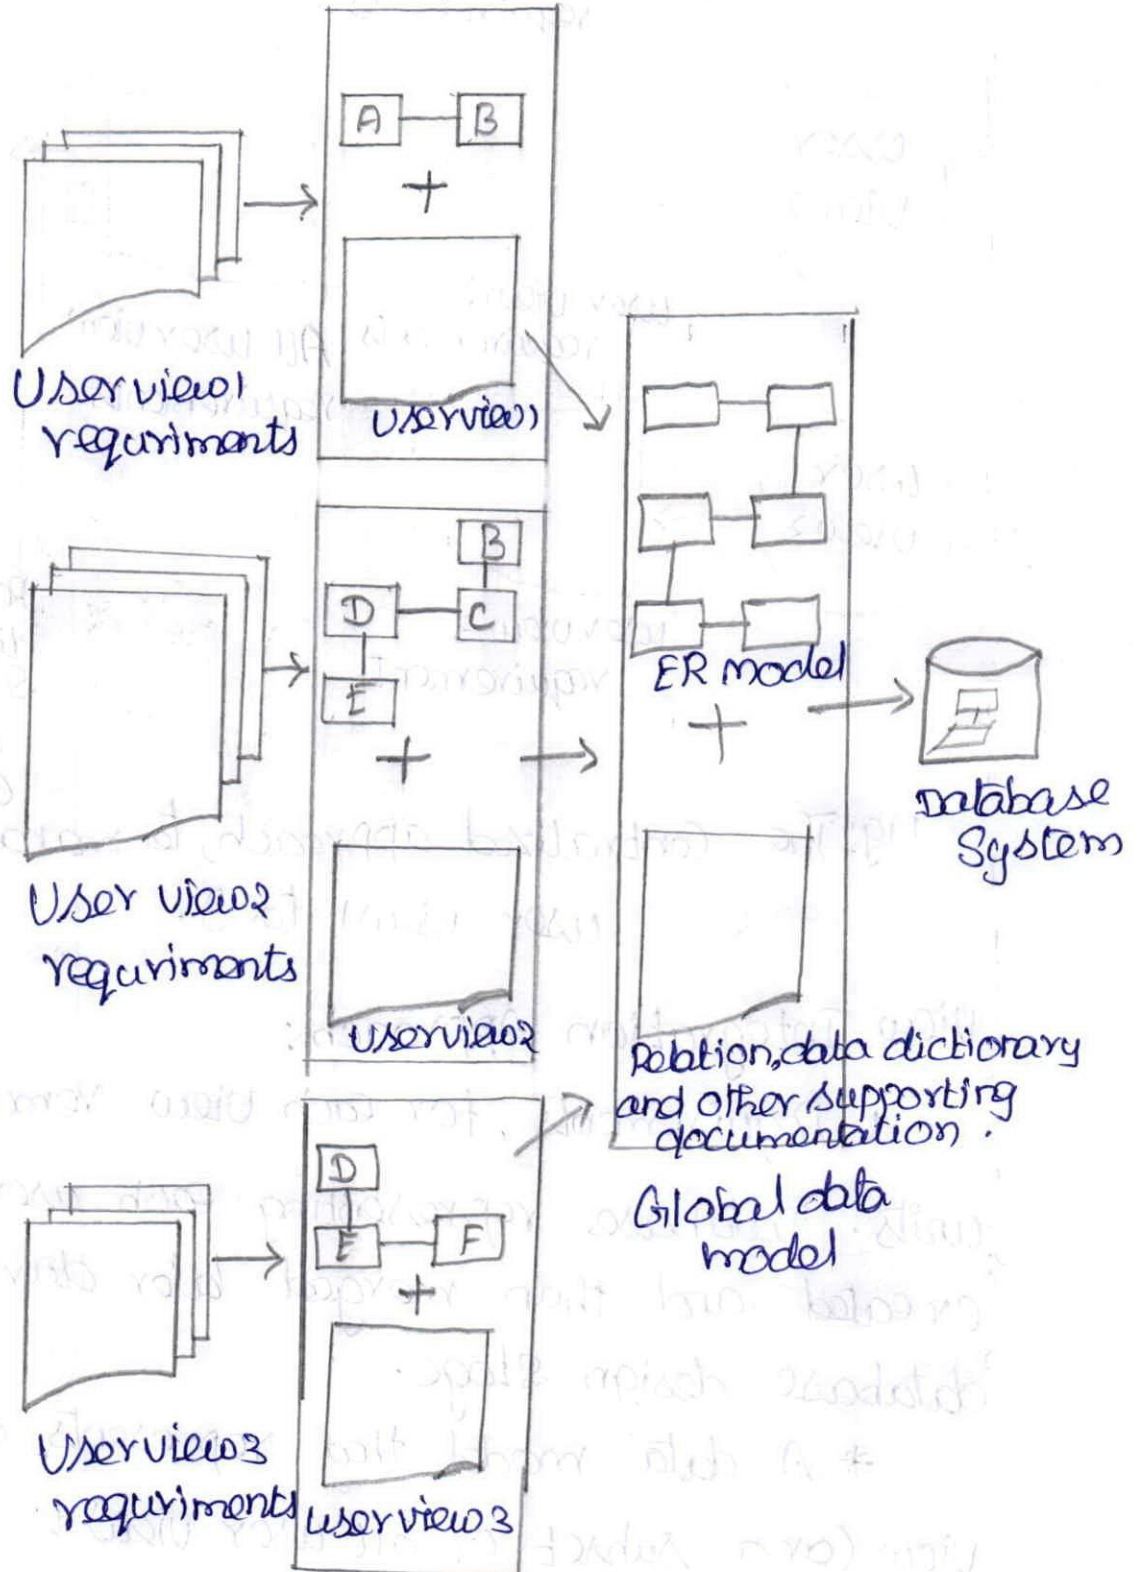 A
B
+
User view1
requriments
Userview1
B
D
C
E
+
User view2
requriments
Userview2
D
E
F
+
User view3
requriments
User view3
ER model
+
Relation, data dictionary
and other supporting
documentation.
Global data
model
Database
System